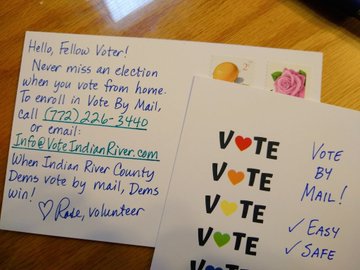 Hello, Fellow Voter!
Never miss an election
when you vote from home.
To enroll in Vote By Mail,
call (772) 226-3440
or email:
Info@VoteIndianRiver.com
When Indian River County
Dems vote by mail, Dems
win!
♡ Rose, volunteer
V♥TE
V♥TE
V♥TE
V♥TE
VOTE
BY
MAIL!
✓ EASY
✓ SAFE